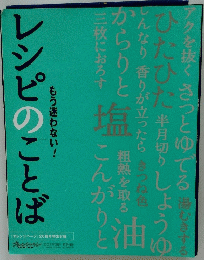 アクを抜く さっとゆでる 湯むきする
ひたひた 半月切り しょうゆ
しんなり 香りが立ったら きつね色
からりと 塩 粗熱を取る 油
三枚におろす こんがりと
もう迷わない!
レシピのことば